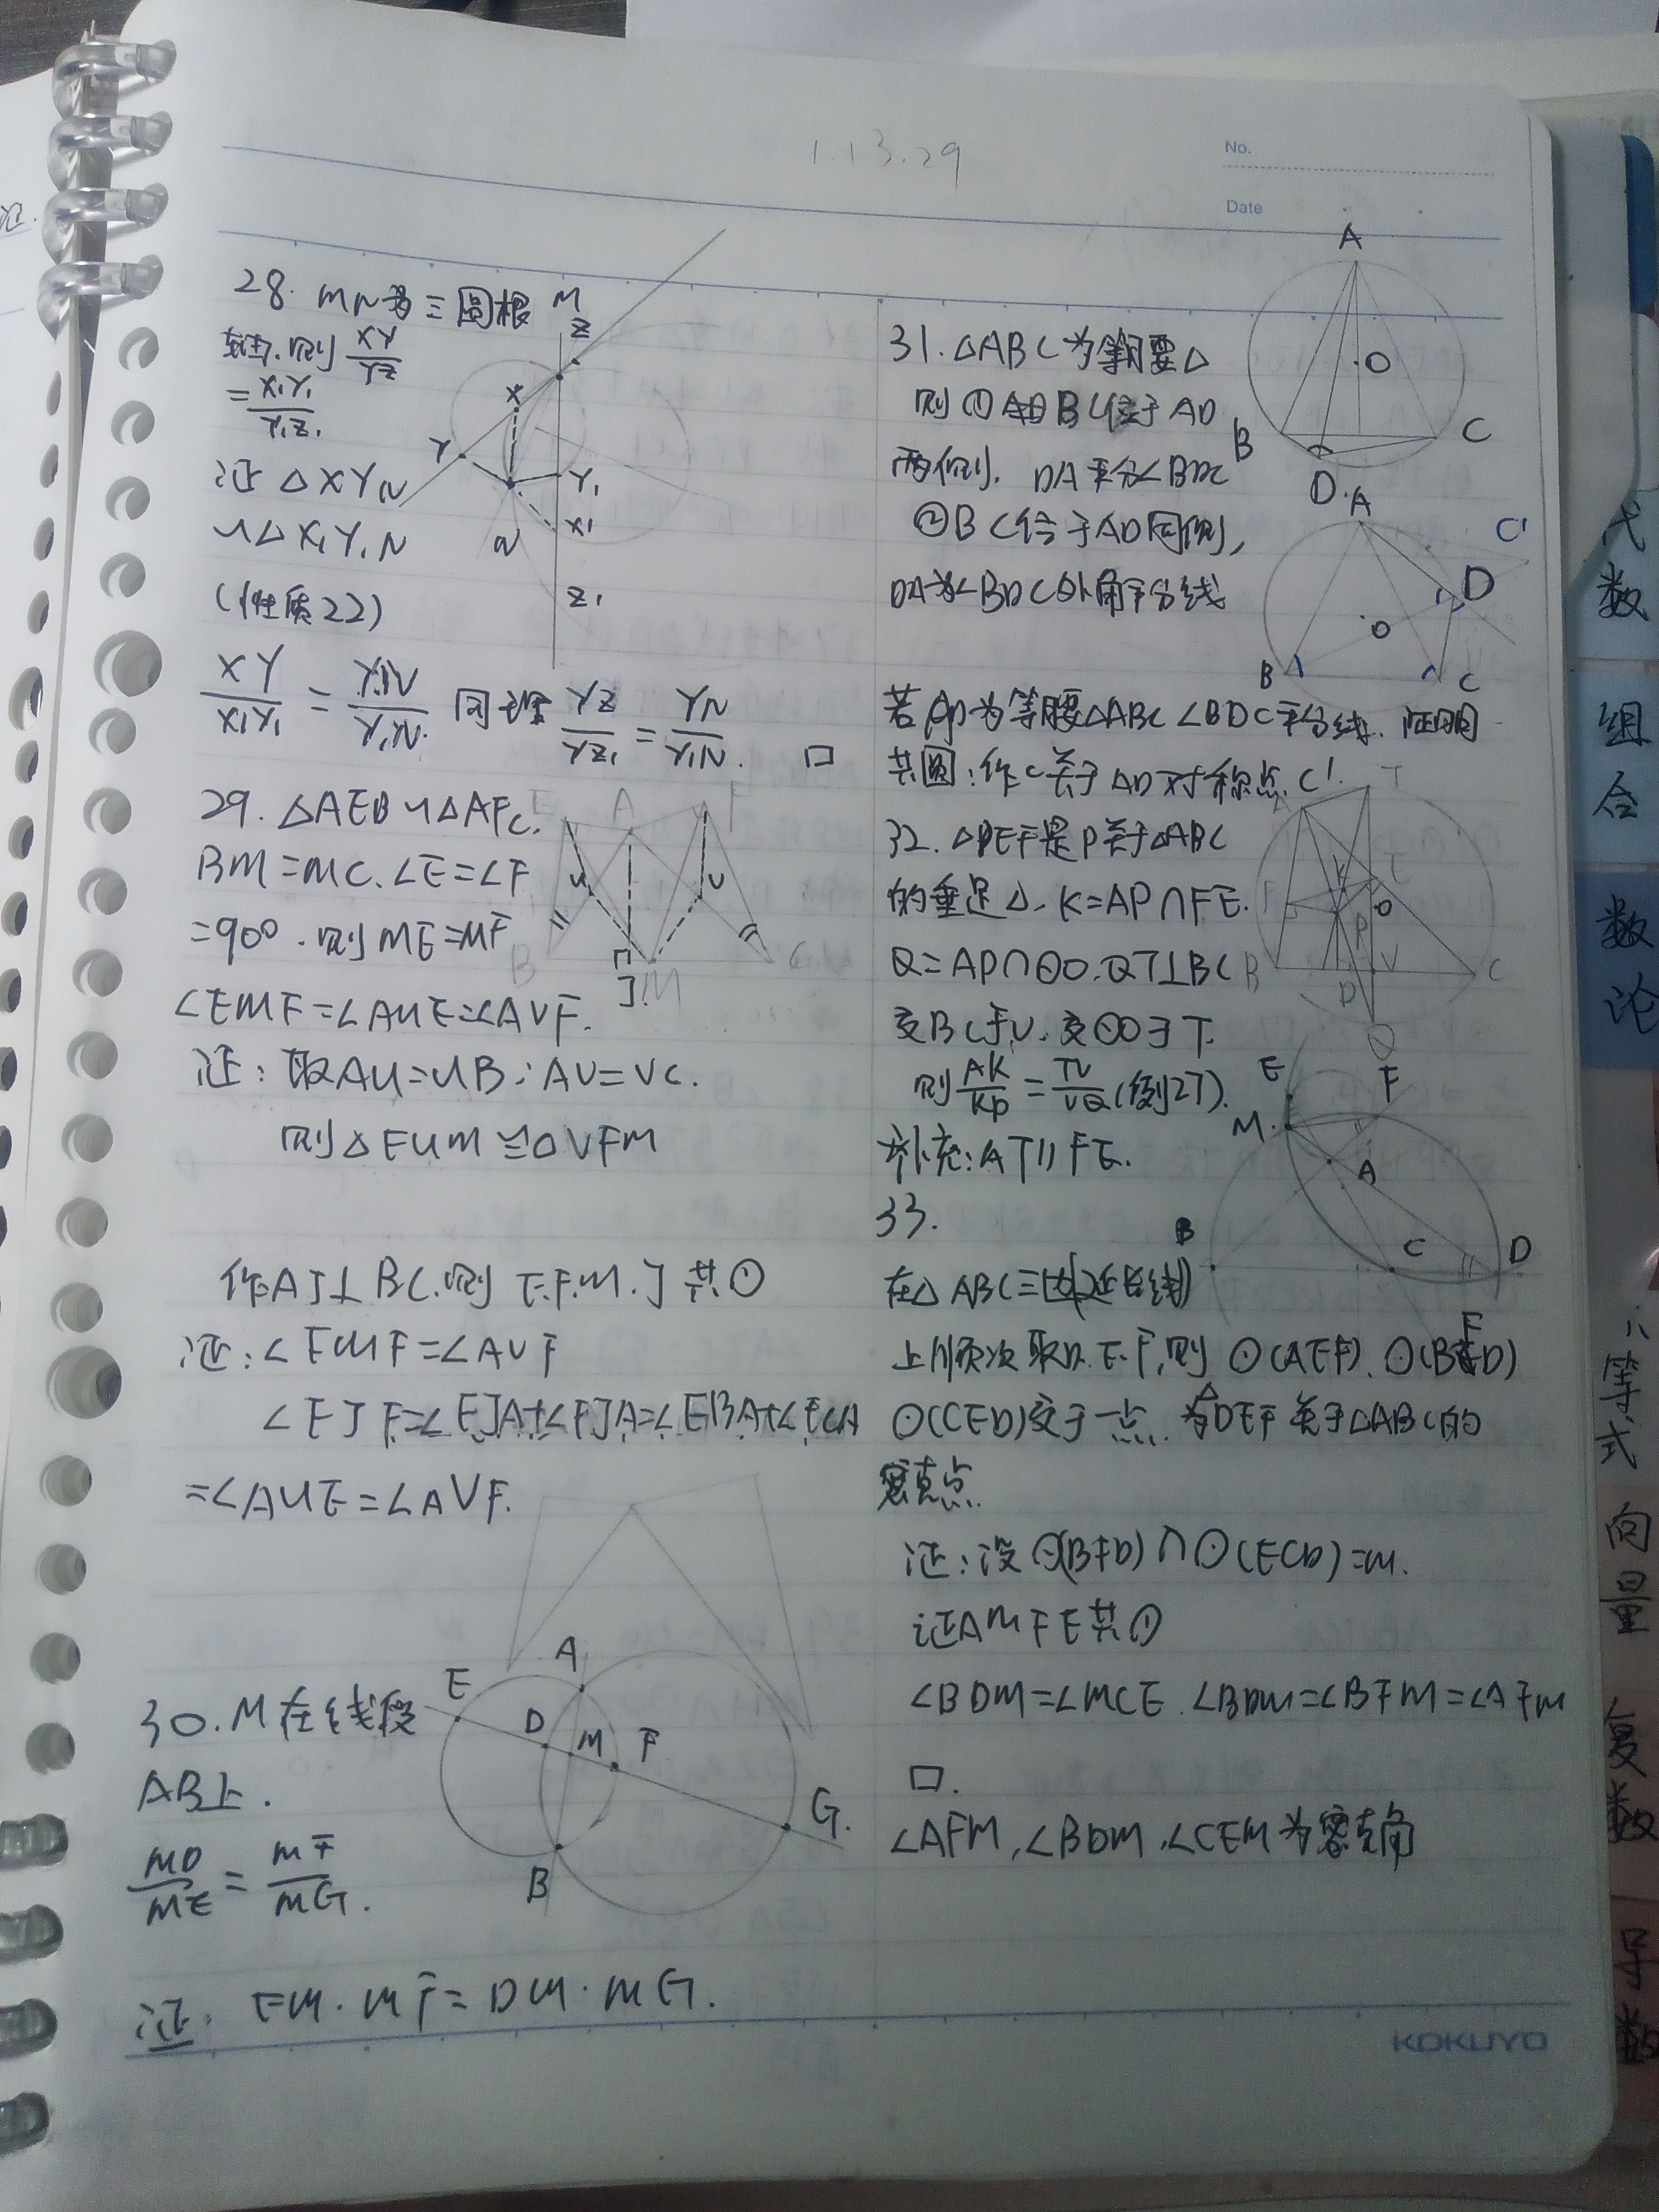 1.13.29
No.
Date
28. MN为三圆根
轴.则 XY/YZ
= X₁Y₁/Y₁Z₁
证 △XYN
∽△X₁Y₁N
(性质22)
XY/X₁Y₁ = YN/Y₁N. 同理 YZ/YZ₁ = YN/Y₁N. □
M
Z
X
Y
Y₁
X₁
N
Z₁
29. △AEB∽△AFC.
BM=MC.∠E=∠F
=90°.则ME=MF
∠EMF=∠AUE=∠AVF.
证:取AU=UB;AV=VC.
则△EUM≌△VFM
E A F
U V
B J M C
作AJ⊥BC.则 E.F.M.J 共⊙
证:∠EMF=∠AVF
∠EJF=∠EJA+∠FJA=∠EBA+∠FCA
=∠AUE=∠AVF.
30.M在线段
AB上.
MD/ME = MF/MG.
证: EM·MF=DM·MG.
E A
D M F
G.
B
31.△ABC为等腰△
则①BC位于AD
两侧. DA平分∠BDC
②BC位于AD同侧,
DA为∠BDC外角平分线
若AD为等腰△ABC∠BDC平分线.证明
共圆:作C关于AD对称点C'.
A
O
B C
D.
A
C'
D
O
B C
32.△DEF是P关于△ABC
的垂足△.K=AP∩FE.
Q=AP∩⊙O.QT⊥BC
交BC于V.交⊙O于T.
则 AK/KP = TV/VQ (例27).
补充:AT∥FE.
A T
K E
F O
P
B V C
D
Q
33.
在△ABC三边(延长线)
上顺次取D.E.F,则 ⊙(AEF).⊙(BFD)
⊙(CED)交于一点.为△DEF关于△ABC的
密克点
证:设⊙(BFD)∩⊙(ECD)=M.
证AMFE共⊙
∠BDM=∠MCE.∠BDM=∠BFM=∠AFM
□.
∠AFM,∠BDM,∠CEM为密克角
E F
M.
A
B C D
KOKUYO
代
数
组
合
数
论
不
等
式
向
量
复
数